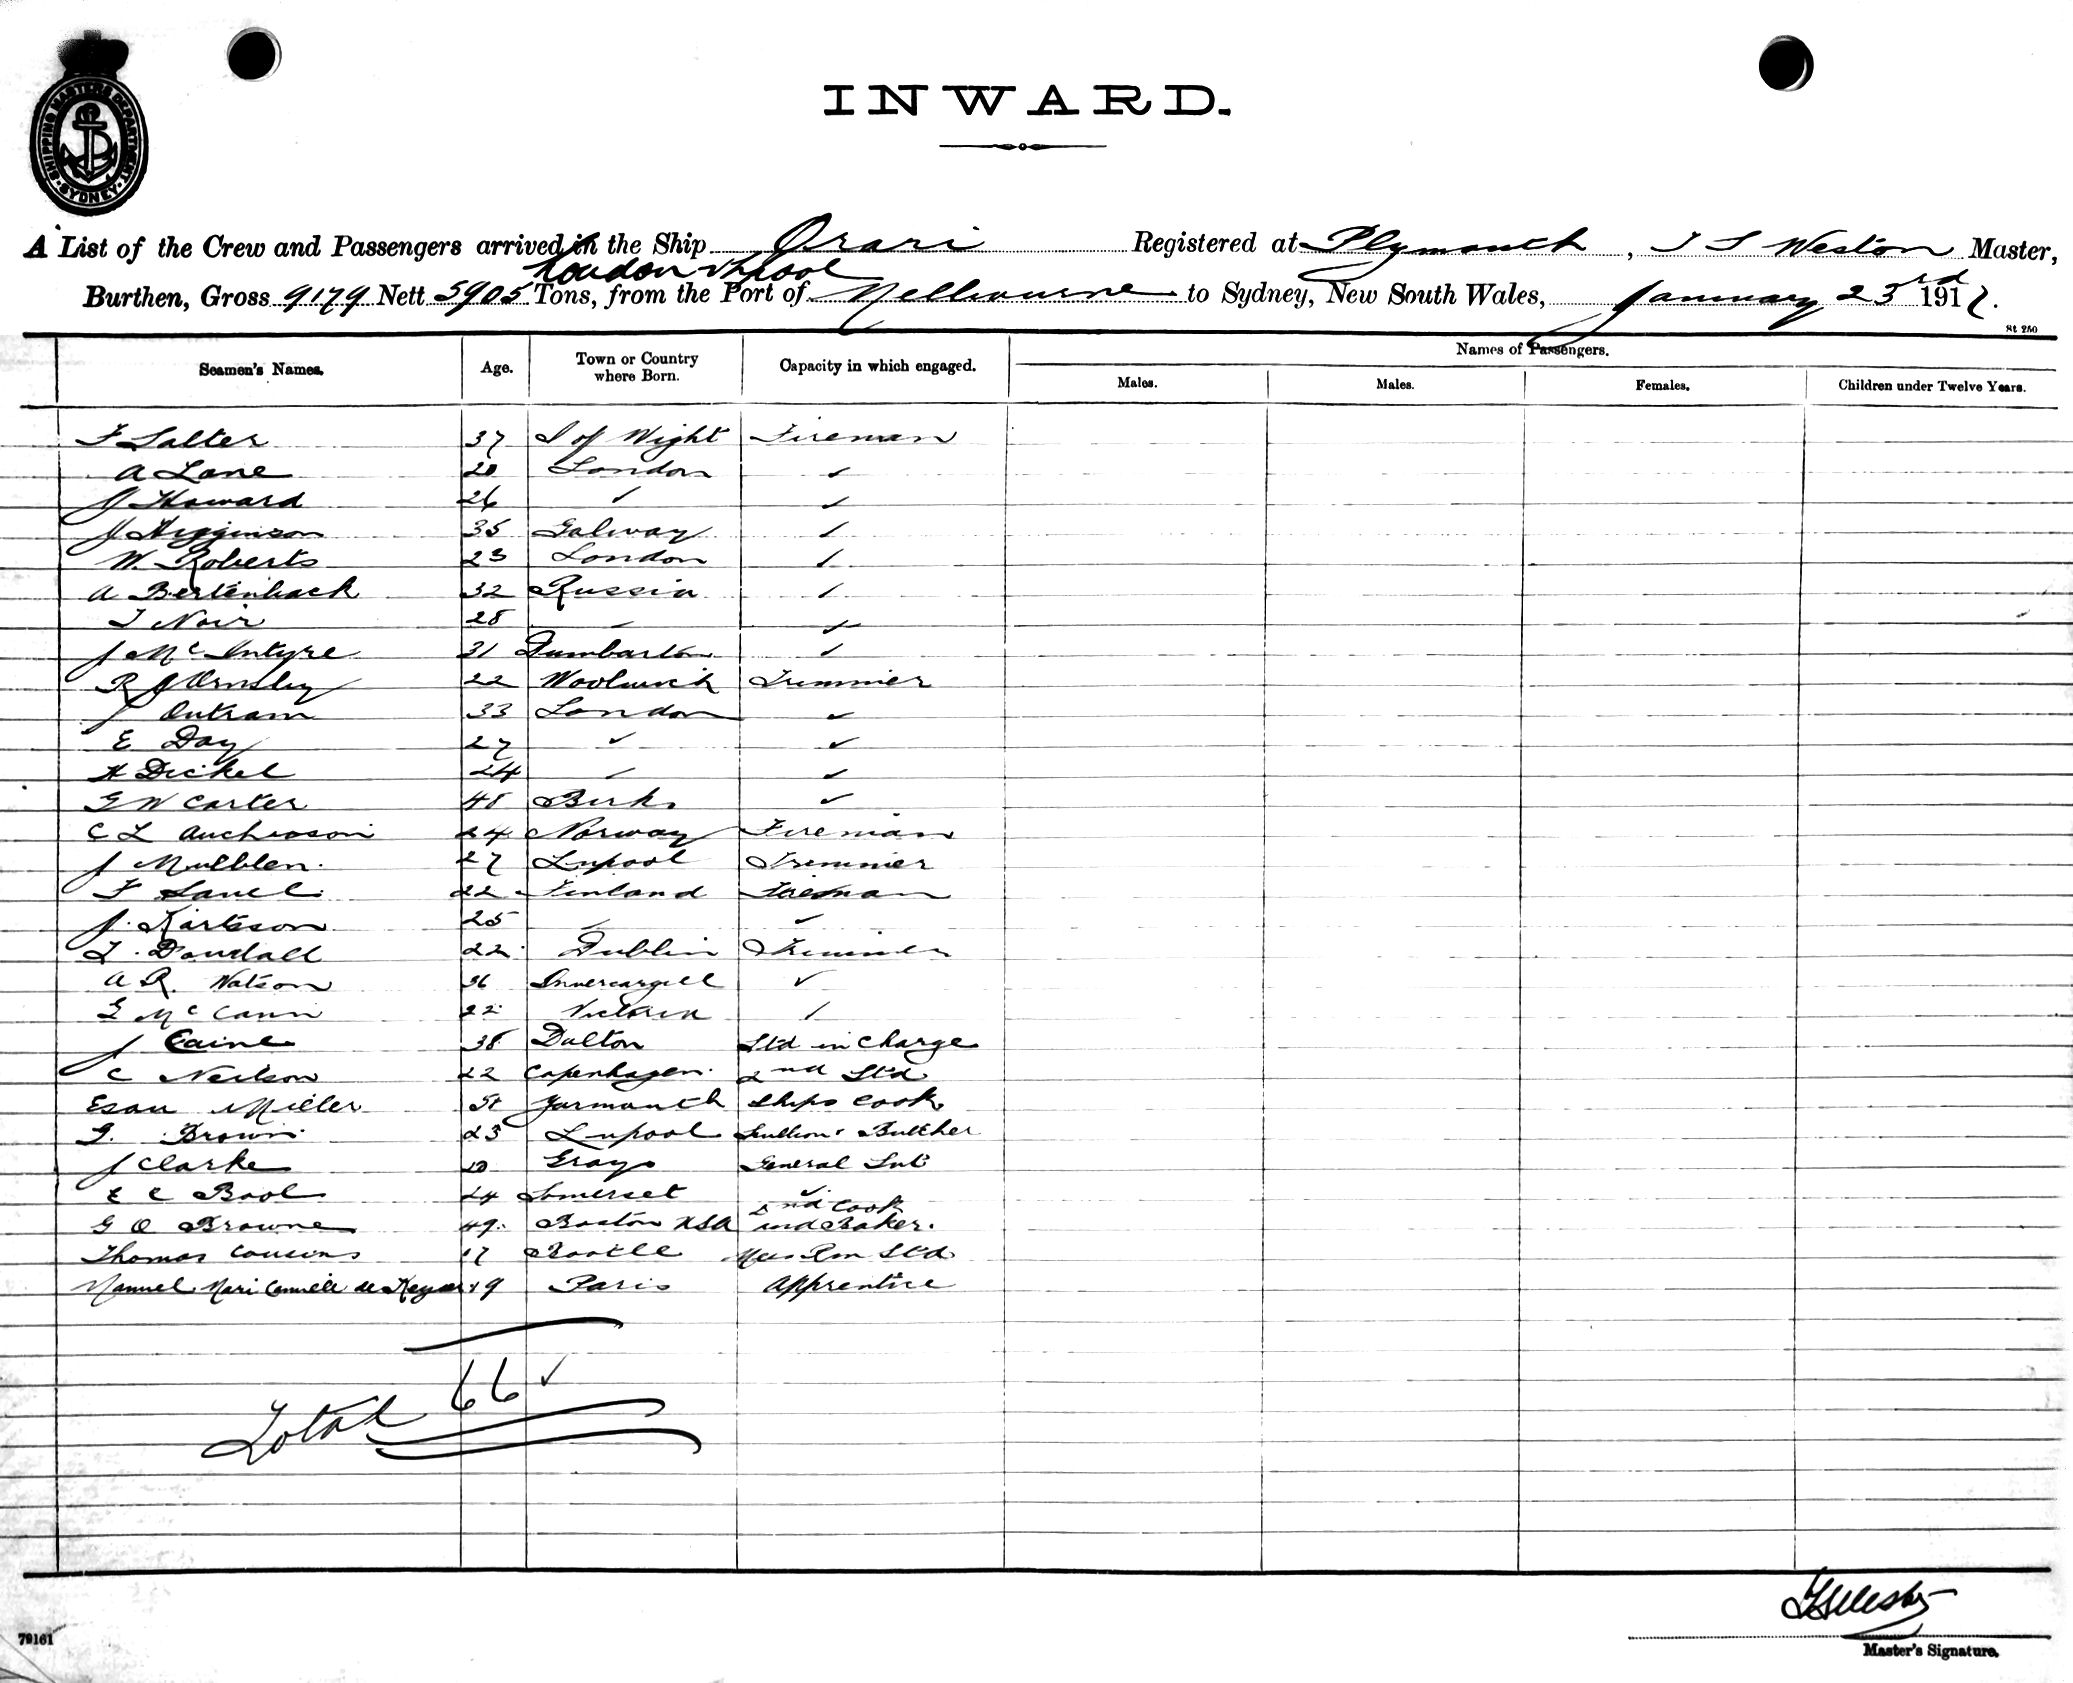 SHIPPING MASTERS DEPARTMENT
SYDNEY
INWARD.
A List of the Crew and Passengers arrived in the Ship Orari Registered at Plymouth, T S Weston Master,
London & Lpool
Burthen, Gross 9179 Nett 5905 Tons, from the Port of Melbourne to Sydney, New South Wales, January 23rd 1917.
St 250
Seamen's Names. Age. Town or Country where Born. Capacity in which engaged. Names of Passengers.
Males. Males. Females. Children under Twelve Years.
F Salter 37 I of Wight Fireman
A Lane 20 London ✓
J Howard 26 ✓ ✓
J Higginson 35 Galway ✓
W. Roberts 23 London ✓
A Bertenback 32 Russia ✓
T Noir 28 ✓ ✓
J McIntyre 31 Dumbarton ✓
R J Ormsby 22 Woolwich Trimmer
J Outram 33 London ✓
E Day 27 ✓ ✓
H Dickel 24 ✓ ✓
G W Carter 48 Berks ✓
C L 24 Norway Fireman
J Mulblen 27 Lupool Trimmer
F 22 Finland Fireman
J. Karlsson 25 ✓ ✓
T. Dowdall 22 Dublin Trimmer
A R. Watson 36 Invercargill ✓
E McCann 22 Victoria ✓
J Caine 38 Dalton Std in Charge
C Neilson 22 Copenhagen. 2nd Std
Esau Miller 51 Yarmouth Ships Cook
G. Brown 23 Lupool Butcher
J Clarke Grays General
E C Bool 24 Somerset ✓
G O Browne 49. Boston USA 2nd Cook and Baker.
Thomas Cousins 17 Bootle Mess Rm Std
Manuel Mari Camille de Keyser 19 Paris Apprentice
Total 66 ✓
TSWeston
79161
Master's Signature.